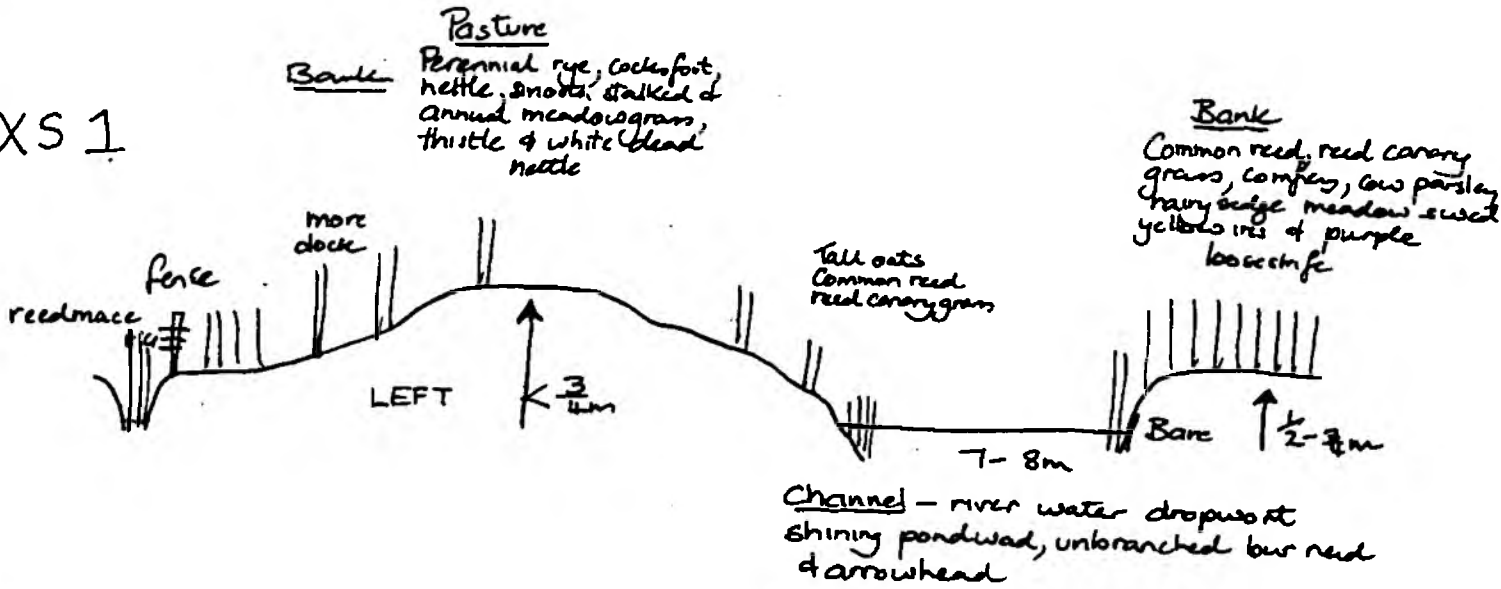 XS 1
Pasture
Bank
Perennial rye, cocksfoot,
nettle, smooth stalked &
annual meadowgrass,
thistle & white dead
nettle
Bank
Common reed, reed canary
grass, comfrey, cow parsley
hairy sedge meadow sweet
yellow iris & purple
loosestrife
more
dock
fence
reedmace
Tall oats
Common reed
reed canary grass
LEFT
< 3/4m
Bare
1/2 - 3/4m
7 - 8m
Channel - river water dropwort
shining pondweed, unbranched bur reed
& arrowhead